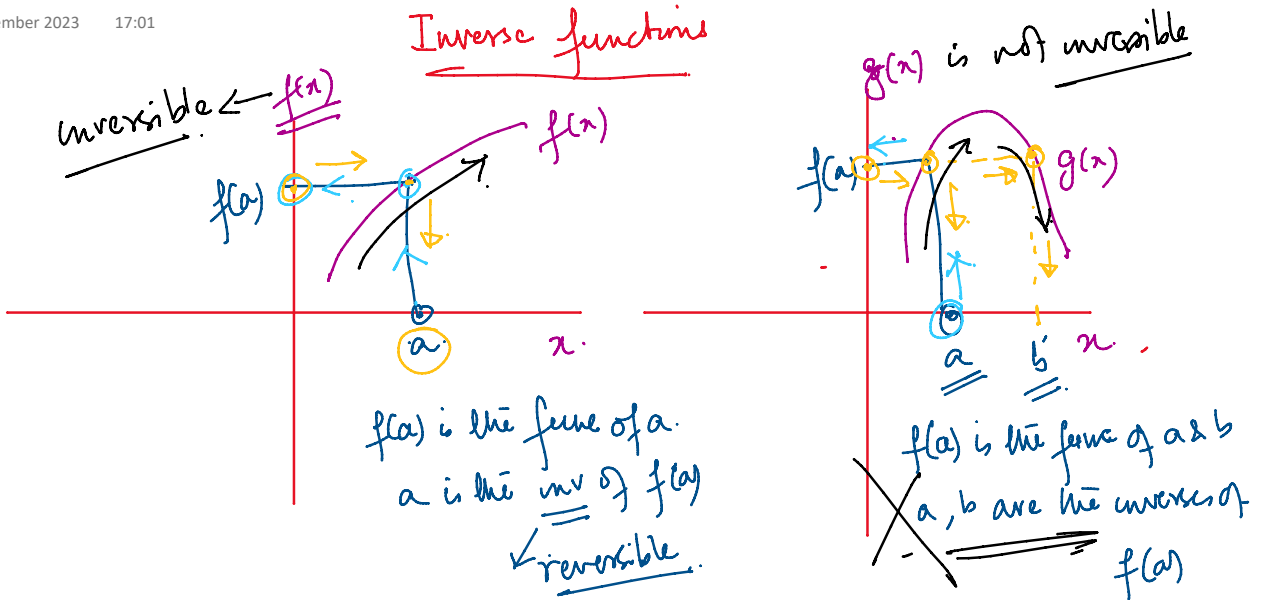 ember 2023 17:01
Inverse functions
inversible ← f(x)
f(x)
f(a)
a
x.
f(a) is the func of a.
a is the inv of f(a)
reversible.
g(x) is not inversible
f(a)
g(x)
a
b
x.
f(a) is the func of a & b
a, b are the inverses of
f(a)